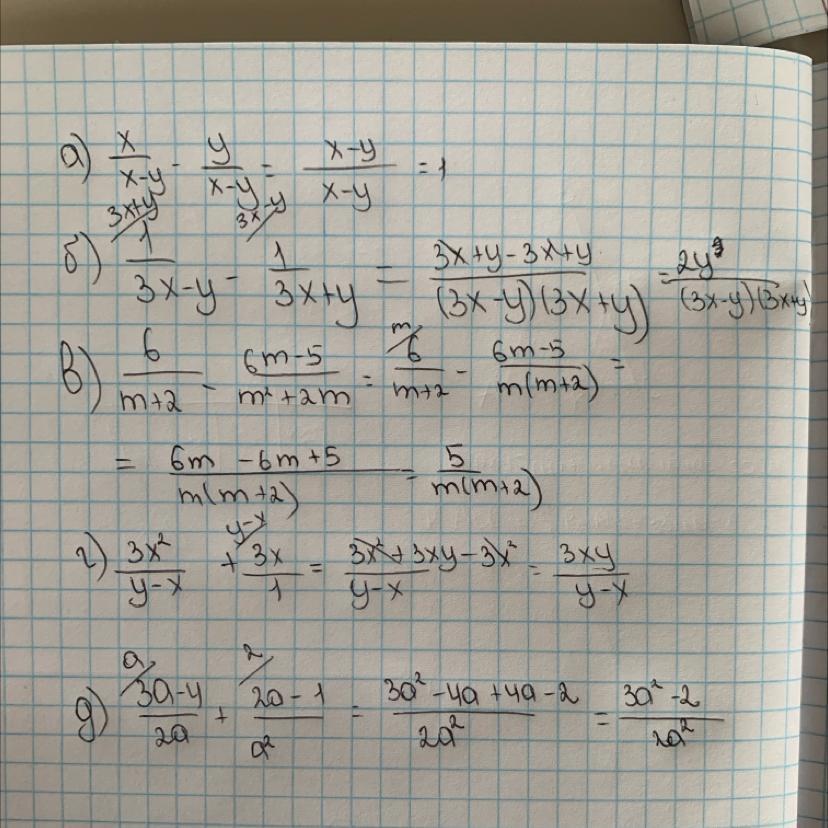 а) x/(x-y) - y/(x-y) = (x-y)/(x-y) = 1
3x+y 3x-y
б) 1/(3x-y) - 1/(3x+y) = (3x+y-3x+y)/((3x-y)(3x+y)) = 2y/((3x-y)(3x+y)
m
в) 6/(m+2) - (6m-5)/(m²+2m) = 6/(m+2) - (6m-5)/(m(m+2)) =
= (6m -6m+5)/(m(m+2)) = 5/(m(m+2))
y-x
г) 3x²/(y-x) + 3x/1 = (3x²+3xy-3x²)/(y-x) = 3xy/(y-x)
a 2
д) (3a-4)/2a + (2a-1)/a² = (3a²-4a+4a-2)/2a² = (3a²-2)/2a²